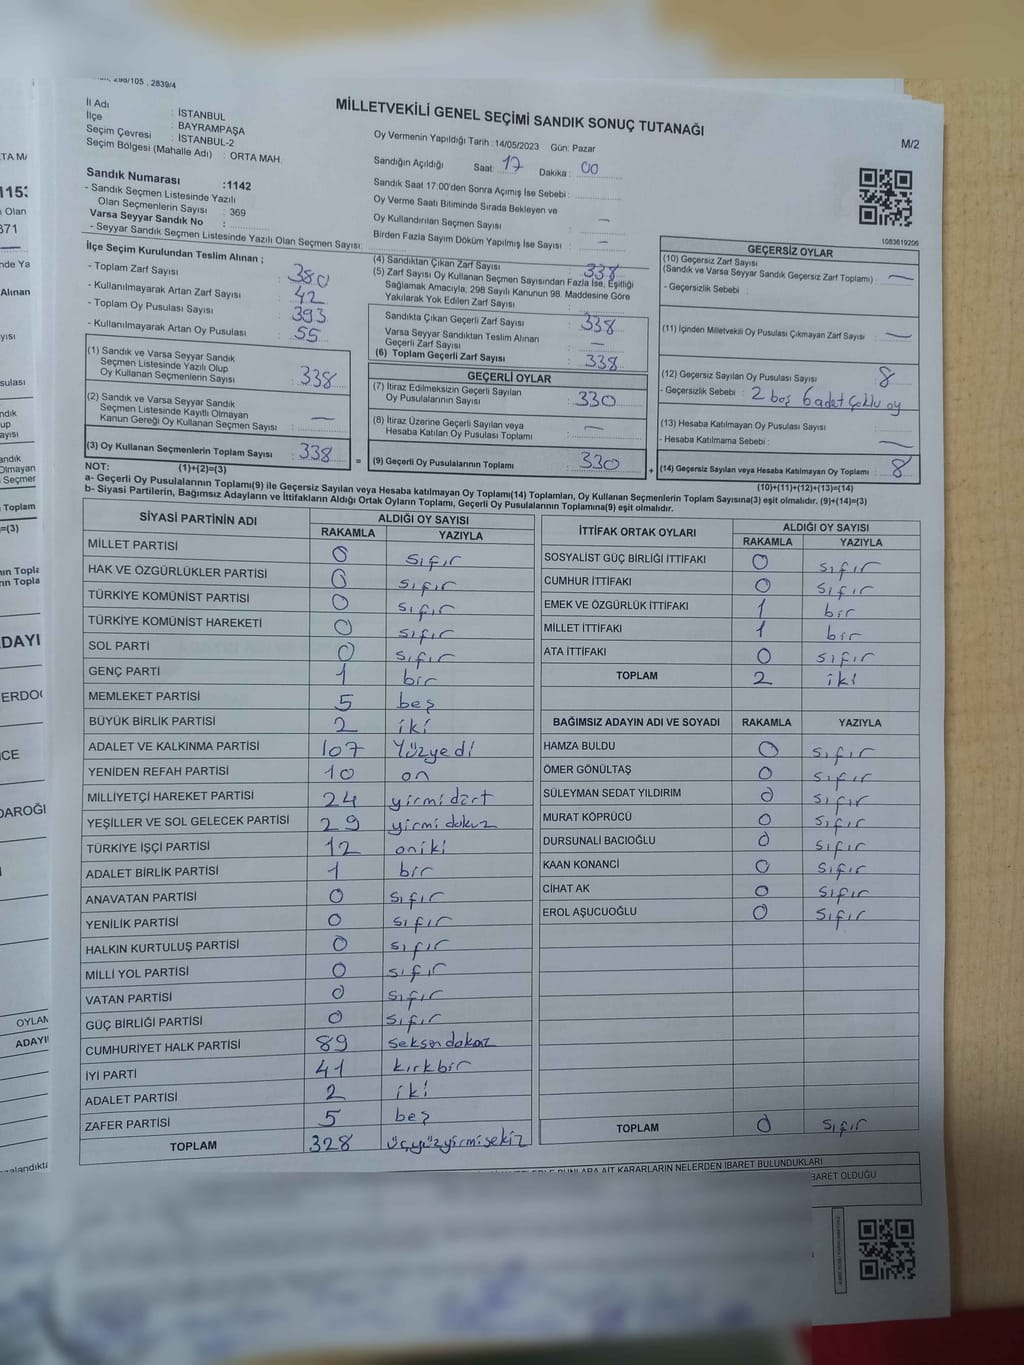 298/105 , 2839/4
MİLLETVEKİLİ GENEL SEÇİMİ SANDIK SONUÇ TUTANAĞI
M/2
İl Adı : İSTANBUL
İlçe : BAYRAMPAŞA
Seçim Çevresi : İSTANBUL-2
Seçim Bölgesi (Mahalle Adı) : ORTA MAH.
Oy Vermenin Yapıldığı Tarih : 14/05/2023 Gün: Pazar
Sandığın Açıldığı Saat: 17 Dakika : 00
Sandık Saat 17:00'den Sonra Açımış İse Sebebi :
Oy Verme Saati Bitiminde Sırada Bekleyen ve
Oy Kullandırılan Seçmen Sayısı : —
Birden Fazla Sayım Döküm Yapılmış İse Sayısı : —
Sandık Numarası :1142
- Sandık Seçmen Listesinde Yazılı
Olan Seçmenlerin Sayısı : 369
Varsa Seyyar Sandık No :
- Seyyar Sandık Seçmen Listesinde Yazılı Olan Seçmen Sayısı:
1083619206
İlçe Seçim Kurulundan Teslim Alınan ;
- Toplam Zarf Sayısı : 380
- Kullanılmayarak Artan Zarf Sayısı : 42
- Toplam Oy Pusulası Sayısı : 393
- Kullanılmayarak Artan Oy Pusulası : 55
(1) Sandık ve Varsa Seyyar Sandık
Seçmen Listesinde Yazılı Olup
Oy Kullanan Seçmenlerin Sayısı : 338
(2) Sandık ve Varsa Seyyar Sandık
Seçmen Listesinde Kayıtlı Olmayan
Kanun Gereği Oy Kullanan Seçmen Sayısı : —
(3) Oy Kullanan Seçmenlerin Toplam Sayısı : 338
(4) Sandıktan Çıkan Zarf Sayısı : 338
(5) Zarf Sayısı Oy Kullanan Seçmen Sayısından Fazla İse, Eşitliği
Sağlamak Amacıyla, 298 Sayılı Kanunun 98. Maddesine Göre
Yakılarak Yok Edilen Zarf Sayısı :
Sandıkta Çıkan Geçerli Zarf Sayısı : 338
Varsa Seyyar Sandıktan Teslim Alınan
Geçerli Zarf Sayısı : —
(6) Toplam Geçerli Zarf Sayısı : 338
GEÇERLİ OYLAR
(7) İtiraz Edilmeksizin Geçerli Sayılan
Oy Pusulalarının Sayısı : 330
(8) İtiraz Üzerine Geçerli Sayılan veya
Hesaba Katılan Oy Pusulası Toplamı : —
= (9) Geçerli Oy Pusulalarının Toplamı : 330 +
GEÇERSİZ OYLAR
(10) Geçersiz Zarf Sayısı
(Sandık ve Varsa Seyyar Sandık Geçersiz Zarf Toplamı) : —
- Geçersizlik Sebebi :
(11) İçinden Milletvekili Oy Pusulası Çıkmayan Zarf Sayısı : —
(12) Geçersiz Sayılan Oy Pusulası Sayısı : 8
- Geçersizlik Sebebi : 2 boş 6 adet Çoklu oy
(13) Hesaba Katılmayan Oy Pusulası Sayısı
- Hesaba Katılmama Sebebi : —
(14) Geçersiz Sayılan veya Hesaba Katılmayan Oy Toplamı : 8
NOT: (1)+(2)=(3)
(10)+(11)+(12)+(13)=(14)
a- Geçerli Oy Pusulalarının Toplamı(9) ile Geçersiz Sayılan veya Hesaba katılmayan Oy Toplamı(14) Toplamları, Oy Kullanan Seçmenlerin Toplam Sayısına(3) eşit olmalıdır. (9)+(14)=(3)
b- Siyasi Partilerin, Bağımsız Adayların ve İttifakların Aldığı Ortak Oyların Toplamı, Geçerli Oy Pusulalarının Toplamına(9) eşit olmalıdır.
SİYASİ PARTİNİN ADI ALDIĞI OY SAYISI
RAKAMLA YAZIYLA
MİLLET PARTİSİ 0 sıfır
HAK VE ÖZGÜRLÜKLER PARTİSİ 0 sıfır
TÜRKİYE KOMÜNİST PARTİSİ 0 sıfır
TÜRKİYE KOMÜNİST HAREKETİ 0 sıfır
SOL PARTİ 0 sıfır
GENÇ PARTİ 1 bir
MEMLEKET PARTİSİ 5 beş
BÜYÜK BİRLİK PARTİSİ 2 iki
ADALET VE KALKINMA PARTİSİ 107 Yüzyedi
YENİDEN REFAH PARTİSİ 10 on
MİLLİYETÇİ HAREKET PARTİSİ 24 yirmi dört
YEŞİLLER VE SOL GELECEK PARTİSİ 29 yirmi dokuz
TÜRKİYE İŞÇİ PARTİSİ 12 oniki
ADALET BİRLİK PARTİSİ 1 bir
ANAVATAN PARTİSİ 0 sıfır
YENİLİK PARTİSİ 0 sıfır
HALKIN KURTULUŞ PARTİSİ 0 sıfır
MİLLİ YOL PARTİSİ 0 sıfır
VATAN PARTİSİ 0 sıfır
GÜÇ BİRLİĞİ PARTİSİ 0 sıfır
CUMHURİYET HALK PARTİSİ 89 seksen dokuz
İYİ PARTİ 41 kırkbir
ADALET PARTİSİ 2 iki
ZAFER PARTİSİ 5 beş
TOPLAM 328 üçyüzyirmisekiz
İTTİFAK ORTAK OYLARI ALDIĞI OY SAYISI
RAKAMLA YAZIYLA
SOSYALİST GÜÇ BİRLİĞİ İTTİFAKI 0 sıfır
CUMHUR İTTİFAKI 0 sıfır
EMEK VE ÖZGÜRLÜK İTTİFAKI 1 bir
MİLLET İTTİFAKI 1 bir
ATA İTTİFAKI 0 sıfır
TOPLAM 2 iki
BAĞIMSIZ ADAYIN ADI VE SOYADI RAKAMLA YAZIYLA
HAMZA BULDU 0 sıfır
ÖMER GÖNÜLTAŞ 0 sıfır
SÜLEYMAN SEDAT YILDIRIM 0 sıfır
MURAT KÖPRÜCÜ 0 sıfır
DURSUNALİ BACIOĞLU 0 sıfır
KAAN KONANCİ 0 sıfır
CİHAT AK 0 sıfır
EROL AŞUCUOĞLU 0 sıfır
TOPLAM 0 sıfır
AİT KARARLARIN NELERDEN İBARET BULUNDUKLARI
BARET OLDUĞU